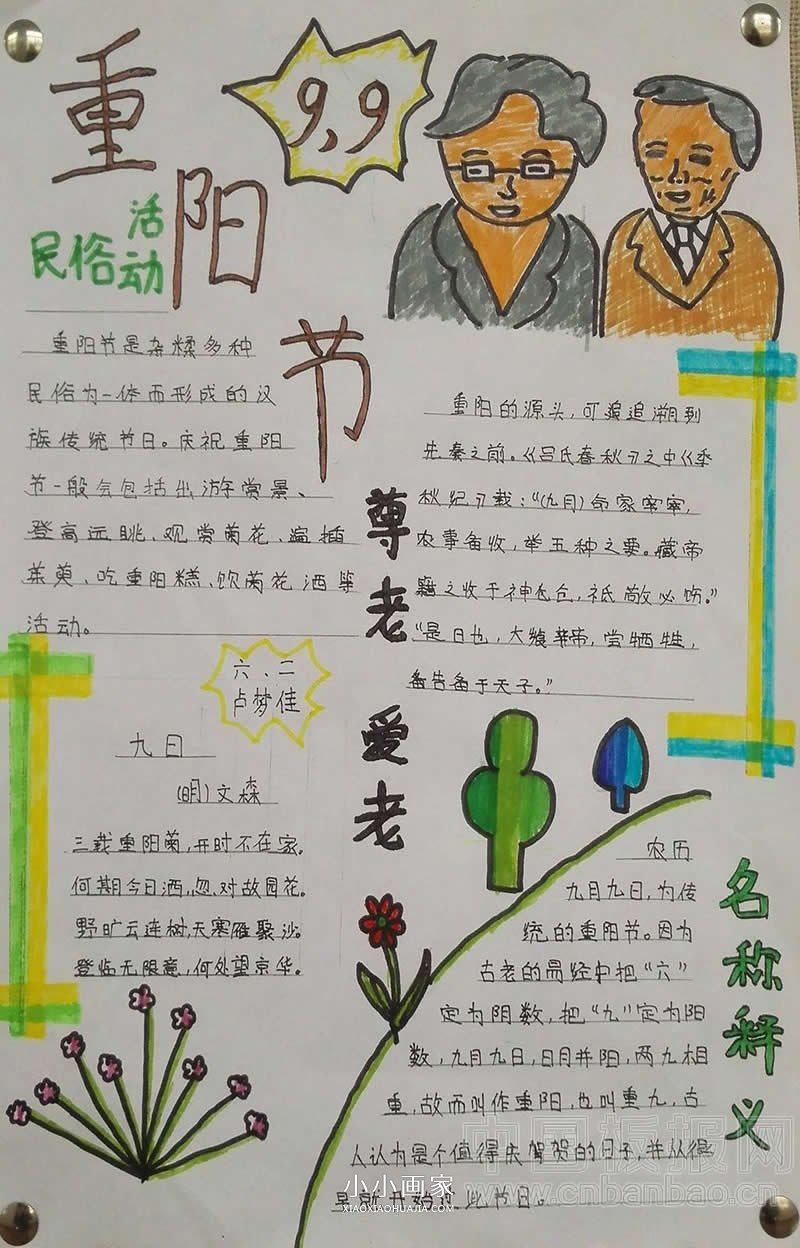 重阳节
9、9
民俗活动
重阳节是杂糅多种
民俗为一体而形成的汉
族传统节日。庆祝重阳
节一般会包括出游赏景、
登高远眺、观赏菊花、遍插
茱萸、吃重阳糕、饮菊花洒等
活动。
尊老爱老
重阳的源头,可追追溯到
先秦之前。《吕氏春秋》之中《季
秋纪》载:“(九月)命家宰,
农事备收,举五种之要。藏帝
籍之收于神仓,祗敬必饬。”
“是日也,大飨帝,尝牺牲,
备告备于天子。”
六、二
卢梦佳
九日
(明)文森
三载重阳菊,开时不在家。
何期今日洒,忽对故园花。
野旷云连树,天寒雁聚沙。
登临无限意,何处望京华。
名称释义
农历
九月九日,为传
统的重阳节。因为
古老的易经中把“六”
定为阴数,把“九”定为阳
数,九月九日,日月并阳,两九相
重,故而叫作重阳,也叫重九,古
人认为是个值得庆贺的日子,并从很
早就开始过此节日。
中国板报网
www.cnbanbao.cn
小小画家
XIAOXIAOHUAJIA.COM